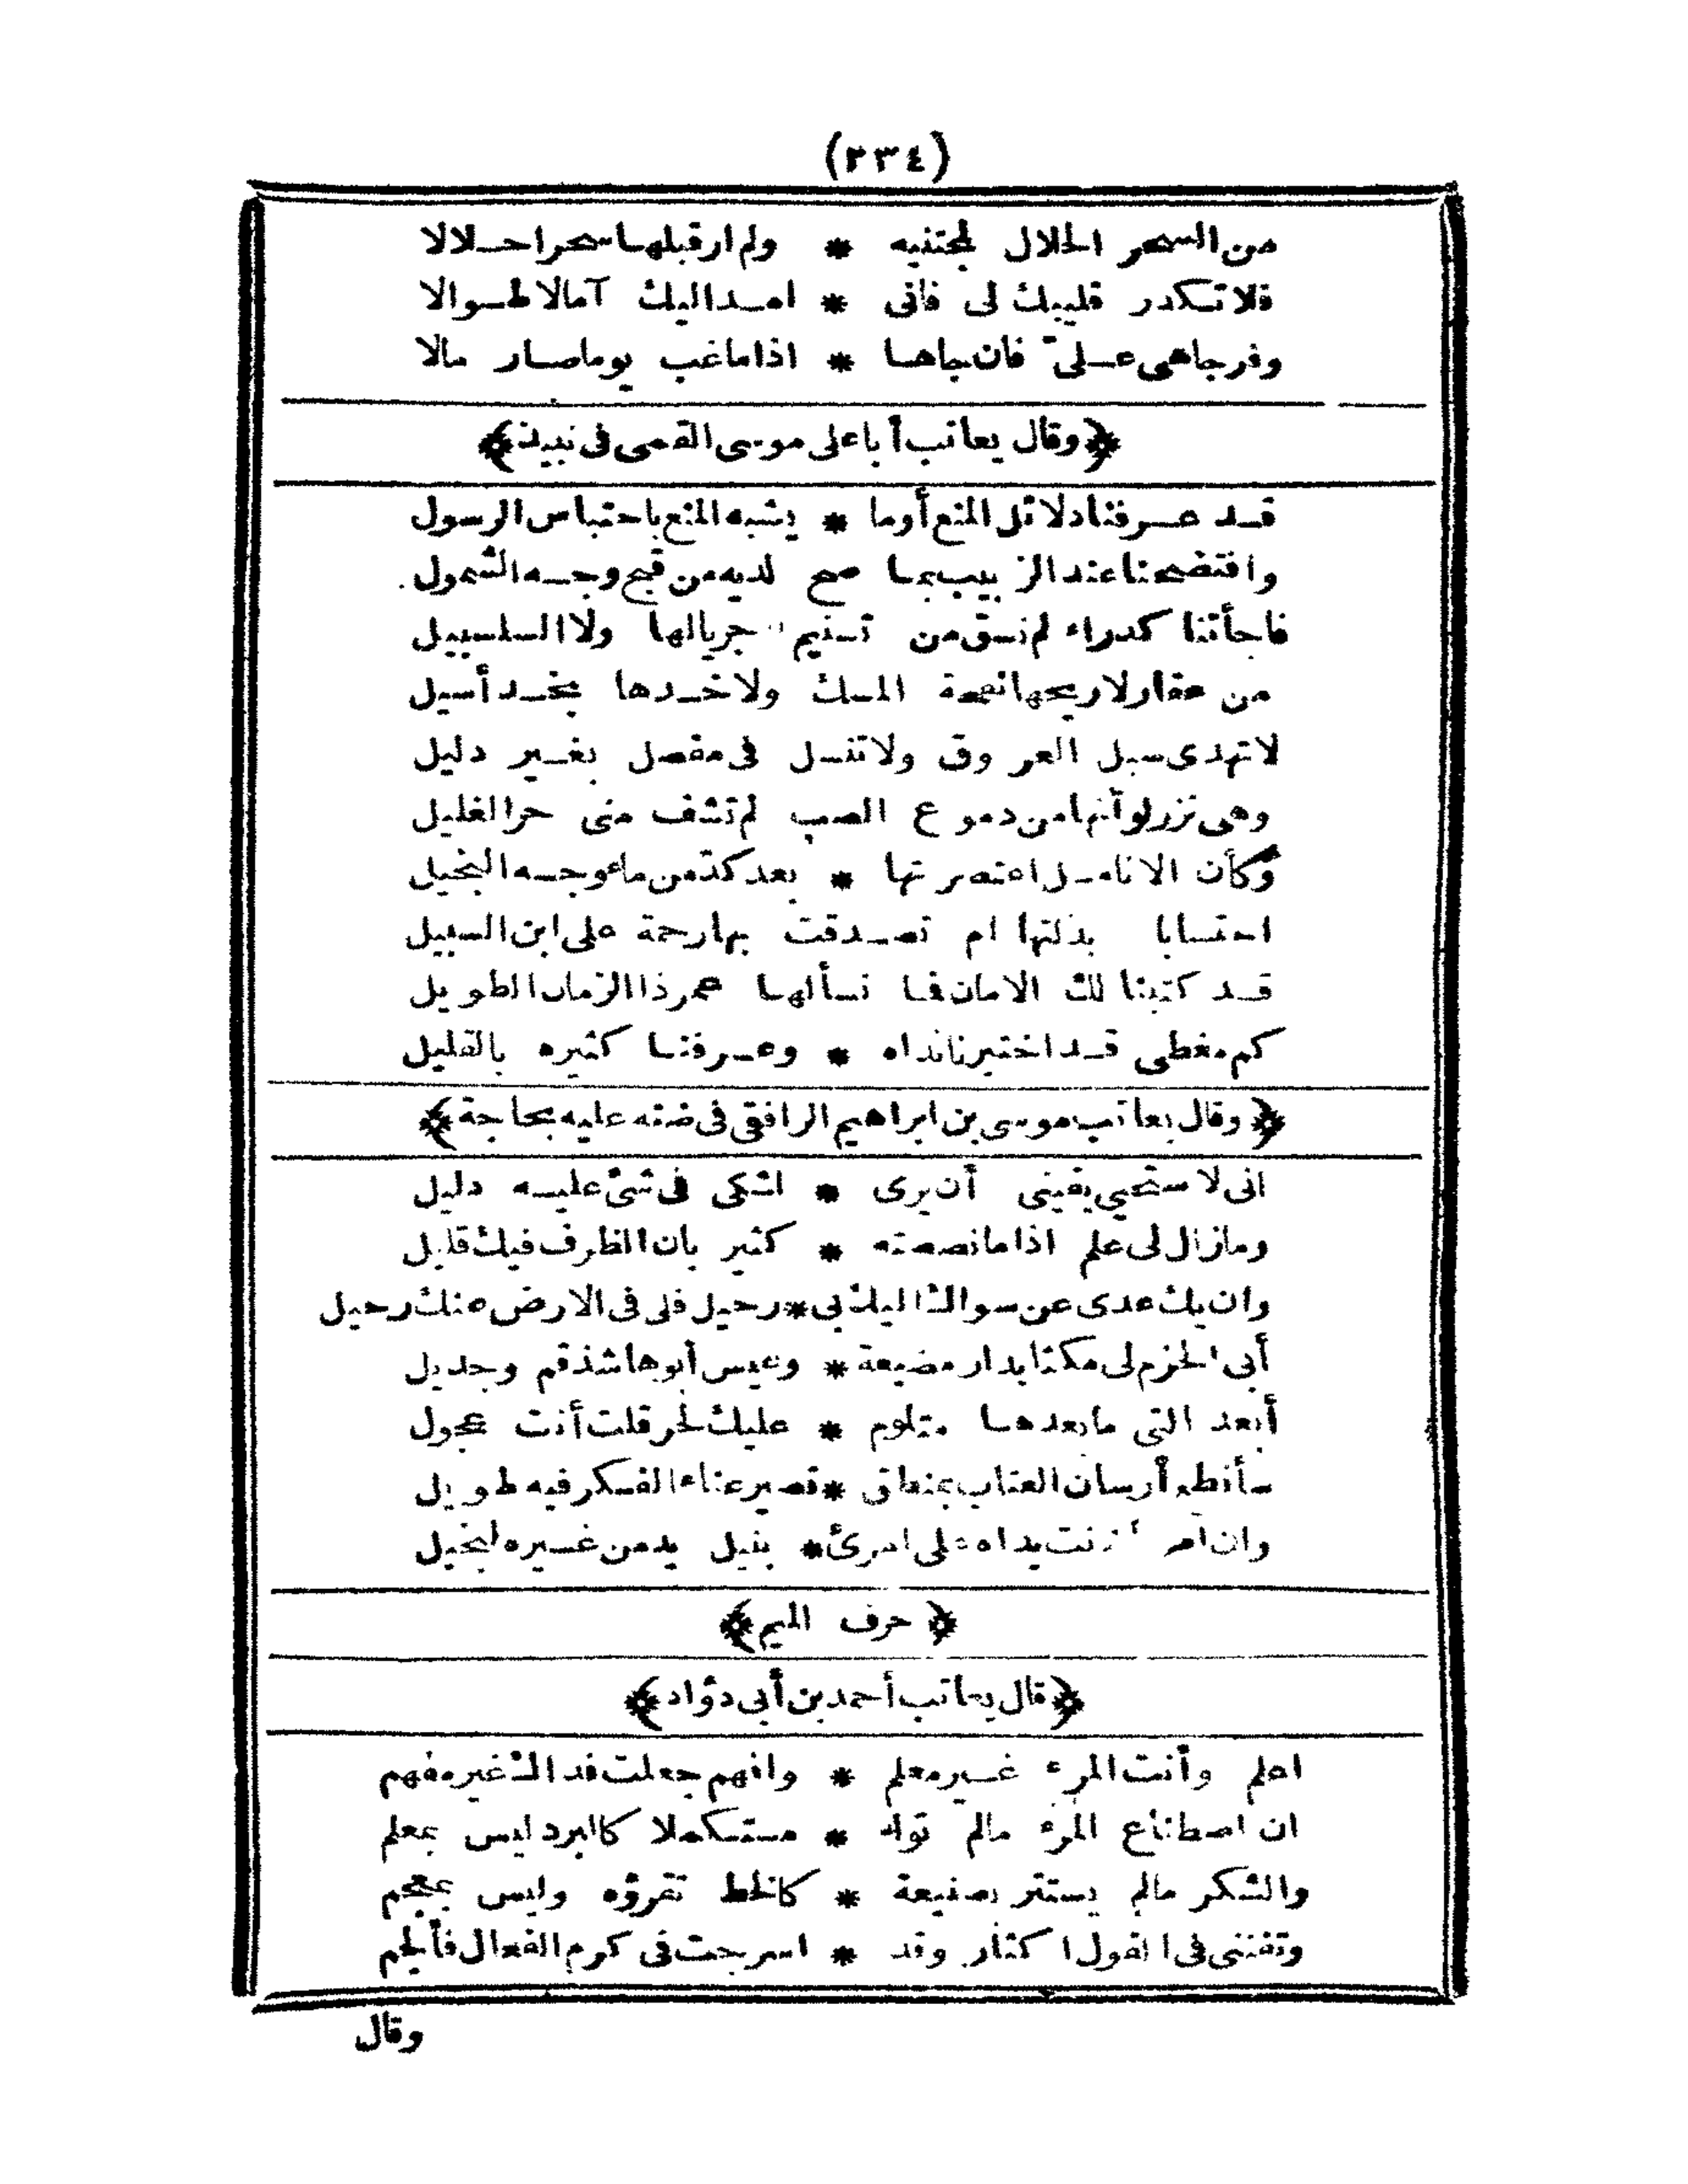 (٣٣٤)
من السحر الحلال لمجتنيه * ولم ار قبلها سحرا حلالا
فلا تكدر قليبك لى فانى * امد اليك آمالا طوالا
وفر جاهى علىّ فان جاها * اذا ما غب يوما صار مالا
﴿وقال يعاتب أبا على موسى القمى فى نبيذ﴾
قد عرفنا دلائل المنع أوما * يشبه المنع باحتباس الرسول
وافتضحنا عند الزبيب بما صح لديه من قبح وجه الشمول
فاجأتنا كدراء لم نسق من تسنيم جريالها ولا السلسبيل
من عقار لا ريحها نفحة المسك ولا خدها بخد أسيل
لا تهدى سبل العروق ولا تنسل فى مفصل بغير دليل
وهى نزر لو أنها من دموع الصب لم تشف منى حر الغليل
وكأن الانامل اعتصرتها * بعد كدّ من ماء وجه البخيل
احتسابا بذلتها ام تصدقت بها رحمة على ابن السبيل
قد كتبنا لك الامان فما نسألها عمر ذا الزمان الطويل
كم مغطى قد اختبرنا نداه * وعرفنا كثيره بالقليل
﴿وقال يعاتب موسى بن ابراهيم الرافقى فى ضنه عليه بحاجة﴾
انى لاستحيى يقينى أن يرى * لشكى فى شئ عليه دليل
وما زال لى علم اذا ما نصصته * كثير بان الظرف فيك قليل
وان يك عدى عن سواك اليك بى * رحيل فلى فى الارض عنك رحيل
أبى الحزم لى مكثا بدار مضيعة * وعيس أبوها شذقم وجديل
أبعد التى ما بعدها متلوم * عليك لحر قلت أنت عجول
سأقطع أرسان العتاب بمنطق * قصير عناء الفكر فيه طويل
وان امرأ ضنت يداه على امرئ * بنيل يد من غيره لبخيل
﴿حرف الميم﴾
﴿قال يعاتب أحمد بن أبى دؤاد﴾
اعلم وأنت المرء غير معلم * وافهم جعلت فداك غير مفهم
ان اصطناع المرء مالم توله * مستكملا كالبرد ليس بمعلم
والشكر مالم يستتر بصنيعة * كالخط تقرؤه وليس بمعجم
وتفننى فى القول اكثار وقد * اسرجت فى كرم الفعال فألجم
وقال